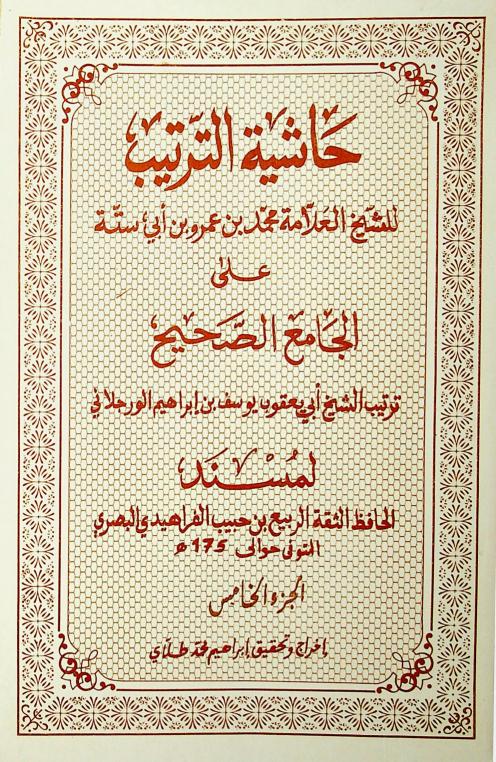 حاشية الترتيب
للشيخ العلامة محمد بن عمرو بن أبي ستة
على
الجامع الصحيح
ترتيب الشيخ أبي يعقوب يوسف بن إبراهيم الورجلاني
لمُسْنَد
الحافظ الثقة الربيع بن حبيب الفراهيدي البصري
المتوفى حوالى 175 هـ
الجزء الخامس
إخراج وتحقيق إبراهيم محمد طلاي